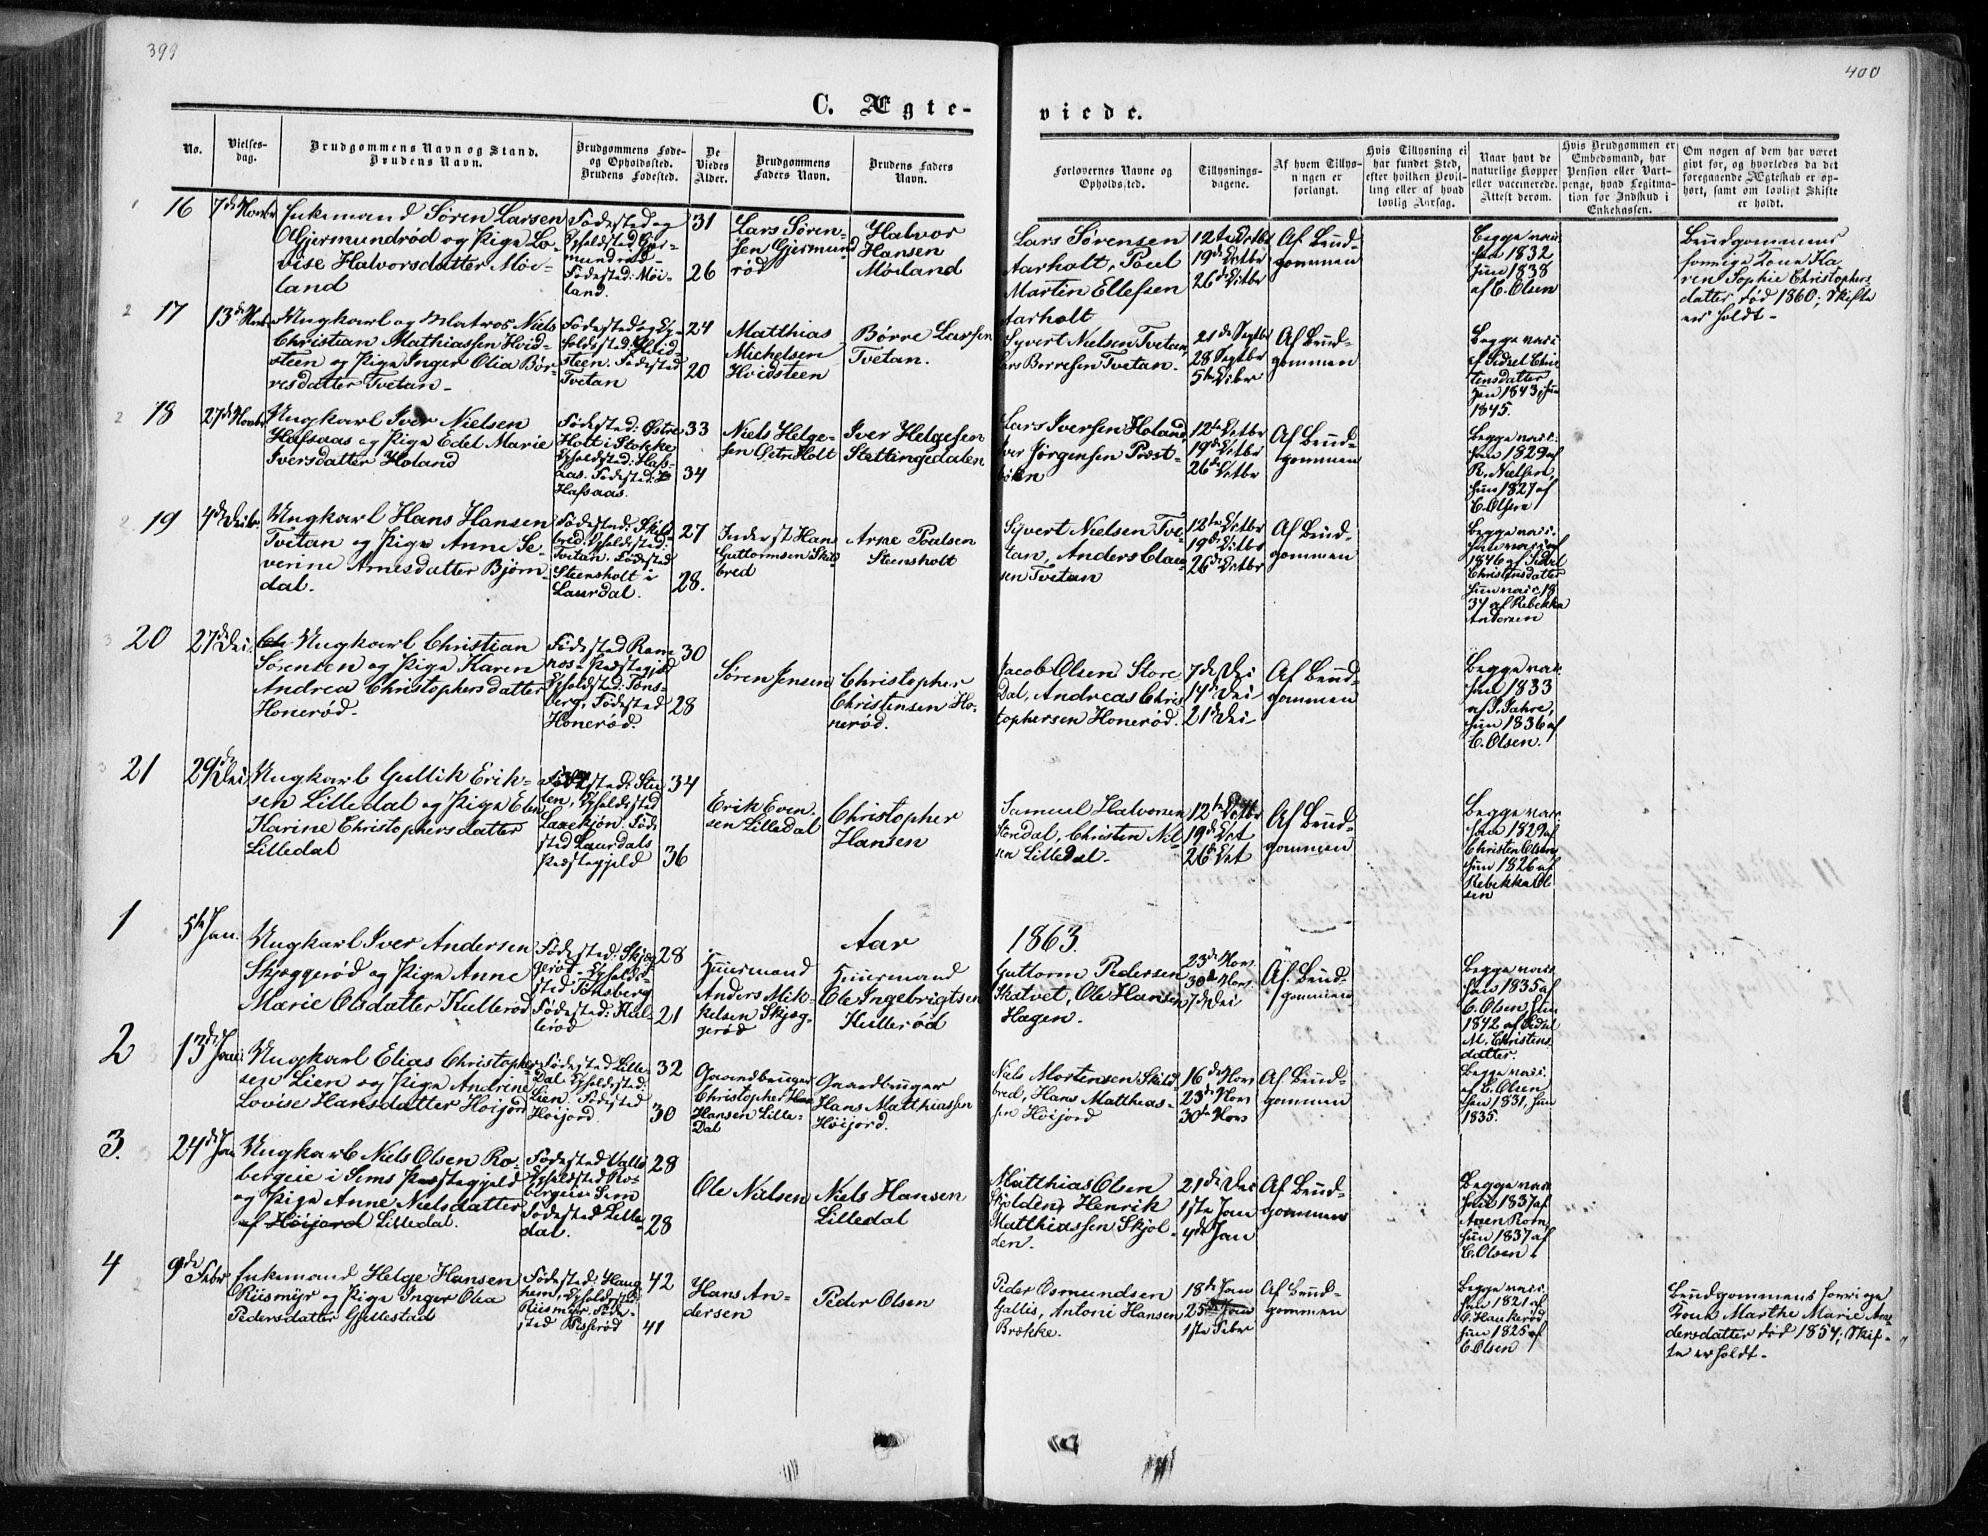 399
400
C. Ægte-
viede.
No.
Vielses-
dag.
Brudgommens Navn og Stand.
Brudens Navn.
Brudgommens Føde-
og Opholdssted.
Brudens Fødested.
De
Viedes
Alder.
Brudgommens
Faders Navn.
Brudens Faders
Navn.
Forlovernes Navne og
Opholdssted.
Tillysnings-
dagene.
Af hvem Tillys-
ningen er
forlangt.
Hvis Tillysning ei
har fundet Sted,
efter hvilken Bevil-
ling eller af hvad
lovlig Aarsag.
Naar havt de
naturlige Kopper
eller vaccinerede.
Attest derom.
Hvis Brudgommen er
Embedsmand, har
Pension eller Vart-
penge, hvad Legitima-
tion for Indskud i
Enkekassen.
Om nogen af dem har været
givt før, og hvorledes da det
foregaaende Ægteskab er op-
hørt, samt om lovligt Skifte
er holdt.
16
7de Novbr
Enkemand Søren Larsen
Gjermundrød og Pige Lo-
vise Halvorsdatter Møi-
land
Fødested og
Opholdsted Gjer-
mundrød
Fødested: Møi-
land.
31
26
Lars Søren-
sen Gjermund
rød
Halvor
Hansen
Møiland
Lars Sørensen
Aarholt, Poul
Martin Ellefsen
Aarholt
12te Octbr
19de Octbr
26de Octbr
Af Brud-
gommen
Begge vacc:
han 1832
hun 1838
af C. Olsen
Brudgommens
forrige Kone Ka-
ren Sophie Christophers-
datter død 1860; Skifte
er holdt -
17
13de Novbr
Ungkarl og Matros Niels
Christian Mathiassen Hvid-
steen og Pige Inger Olia Bør-
resdatter Tvetan -
Fødested og Op-
holdsted: Hvid-
steen. Fødested
Tvetan
24
20
Matthias
Michelsen
Hvidsteen
Børre Larsen
Tvetan.
Syvert Nielsen Tvetan,
Lars Børresen Tvetan.
21de Septbr
28 Septbr
5te Octbr
Af Brud-
gommen
Begge vacc:
af Sidsel Chris
tensdatter
han 1843, hun
1845.
18
27de Novbr
Ungkarl Iver Nielsen
Hafsaas og Pige Edel Marie
Iversdatter Holand
Fødested: Østre
Holt i Stokke
Opholdsted: Hafs-
aas. Fødested:
Hafsaas.
33
34
Niels Helge-
sen Østre Holt
Iver Helgesen
Stettingsdalen
Lars Iversen Holand,
Iver Jørgensen Præst-
bøen
12te Octbr
19de Octbr
26de Octbr
Af Brud-
gommen
Begge vacc:
han 1829 af
R. Nielsen,
hun 1827 af
C. Olsen
19
4de Decbr
Ungkarl Hans Hansen
Tvetan og Pige Anne Se-
verine Arnesdatter Bjørn-
dal.
Fødested: Skil-
bred. Opholdsted:
Tvetan. Fødested
Steensholt i
Laurdal.
27
28.
Inderst Han
Guttormsen Skil
bred
Arne Poulsen
Steensholt
Syvert Nielsen Tve-
tan, Anders Clau-
sen Tvetan
12te Octbr
19de Octbr
26de Octbr
Af Brud-
gommen
Begge vacc:
han vacc: af
1846 af Sidsel
Christensdatter
hun vacc: 18
37 af Rebekka
Andersen
20
27de Dec:
Ungkarl Christian
Sørensen og Pige Karen
Andrea Christophersdatter
Honerød.
Fødested Ram-
nes Præstegjeld
Opholdsted: Tøns-
berg, Fødested
Honerød.
30
28
Søren Jensen
Christopher
Christensen Ho-
nerød.
Jacob Olsen Store
Dal, Andreas Chris-
tophersen Honerød.
7de Dec
14de Dec
21de Dec
Af Brud-
gommen
Begge vac:
han 1833
af J. Sahre,
hun 1836 af
C. Olsen.
21
29de Dec:
Ungkarl Gullik Erik-
sen Lilledal og Pige Elen
Karine Christophersdatter
Lilledal
Fødested: Stu-
len, Opholdsted
Laxekjøn. Føde-
sted Laurdals
Præstegjeld
34
36
Erik Even-
sen Lilledal
Christopher
Hansen
Samuel Halvorsen
Storedal, Christen Niel-
sen Lilledal.
12te Octbr
19de Oct
26de Oct
Af Brud-
gommen
Begge vacc:
han 1829 af
Christen Olsen,
hun 1826 af
Rebekka Ol-
sen
Aar
1863.
1
5te Jan.
Ungkarl Iver Andersen
Skjæggerød og Pige Anne
Marie Olsdatter Kullerød
Fødested: Skjæg-
gerød - Opholds-
sted Tønsberg
Fødested: Kul-
lerød
28
21
Huusmand
Anders Mik-
kelsen Skjæg-
gerød
Huusmand
Ole Ingebrigtsen
Kullerød
Guttorm Pedersen
Skatvet, Ole Hansen
Hagen.
23de Nov
30de Nov
7de Dec
Af Brud-
gommen
Begge vacc:
han 1835 af
C. Olsen, hun
1842 af Sidsel
M. Christens-
datter.
2
13de Jan:
Ungkarl Elias Christopher-
sen Lien og Pige Andrine
Lovise Hansdatter Høijord
Fødested Lille-
Dal Opholdsted:
Lien. Fødested
Høijord.
32
30
Gaardbruger
Christopher
Hansen Lille-
Dal
Gaardbruger
Hans Matthiassen
Høijord.
Niels Mortensen Skild-
bred, Hans Matthias-
sen Høijord
16de Nov
23de Nov
30de Nov
Af Brud-
gommen
Begge vacc:
af C. Olsen
han 1831, hun
1835.
3.
24de Jan
Ungkarl Niels Olsen Ro-
bergeie i Sems Præstegjeld
og Pige Anne Nielsdatter
af Høijord Lilledal.
Fødested Valle
Opholdsted Ro-
bergeie i Sem
Fødested Lille-
dal.
28
28
Ole Nielsen
Niels Hansen
Lilledal
Matthias Olsen
Skjolden, Henrik
Matthiassen Skjol-
den.
21de Dec
1ste Jan
4de Jan
Af Brud-
gommen
Begge vacc
han 1837 af
Aren Rom,
hun 1837 af
C. Olsen
4
9de Febr
Enkemand Helge Hansen
Riismyr og Pige Inger Olea
Pedersdatter Gjellestad
Fødested: Haug-
hem, Opholdsted
Riismyr, Føde-
sted Pisserød
42
41
Hans An-
dersen
Peder Olsen
Peder Osmundsen
Gallis, Antoni Hansen
Brække.
18de Jan
25de Jan
1ste Febr
Af Brud-
gommen
Begge vacc:
han 1821 af
C. Haukerød
hun 1825 af
C. Olsen
Brudgommens forrige
Kone Marthe Marie An-
dersdatter død 1857; Skif-
te er holdt -